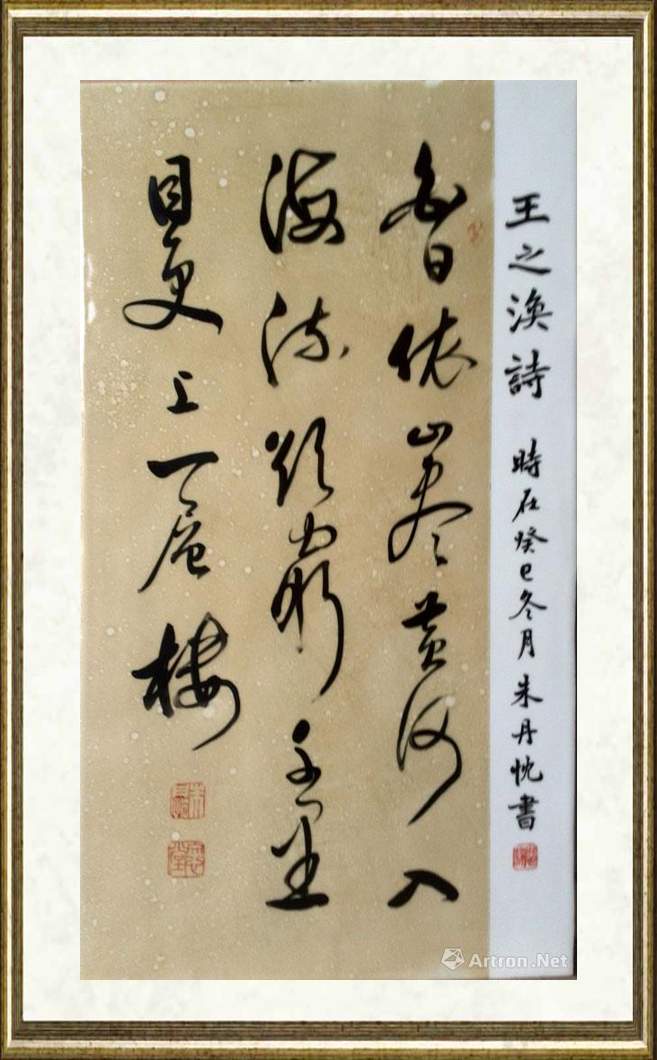 王之渙詩 時在癸巳冬月朱丹忱書
白日依山盡黄河入
海流欲窮千里
目更上一層樓
Artron.Net